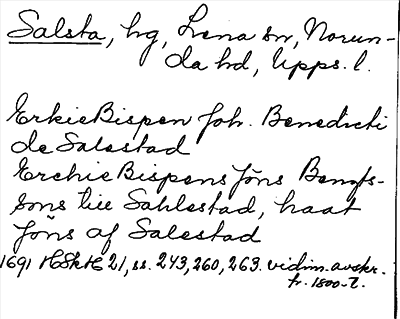 Salsta, hg, Lena sn, Norun-
da hd, Upps. l.
ErkieBispen Joh. Benedicti
de Salestad
ErchieBispens Jöns Bengts-
sons till Sahlestad, haat
Jöns af Salestad
1691 HSkH 21, ss. 243, 260, 263. vidim. avskr.
fr. 1800-t.